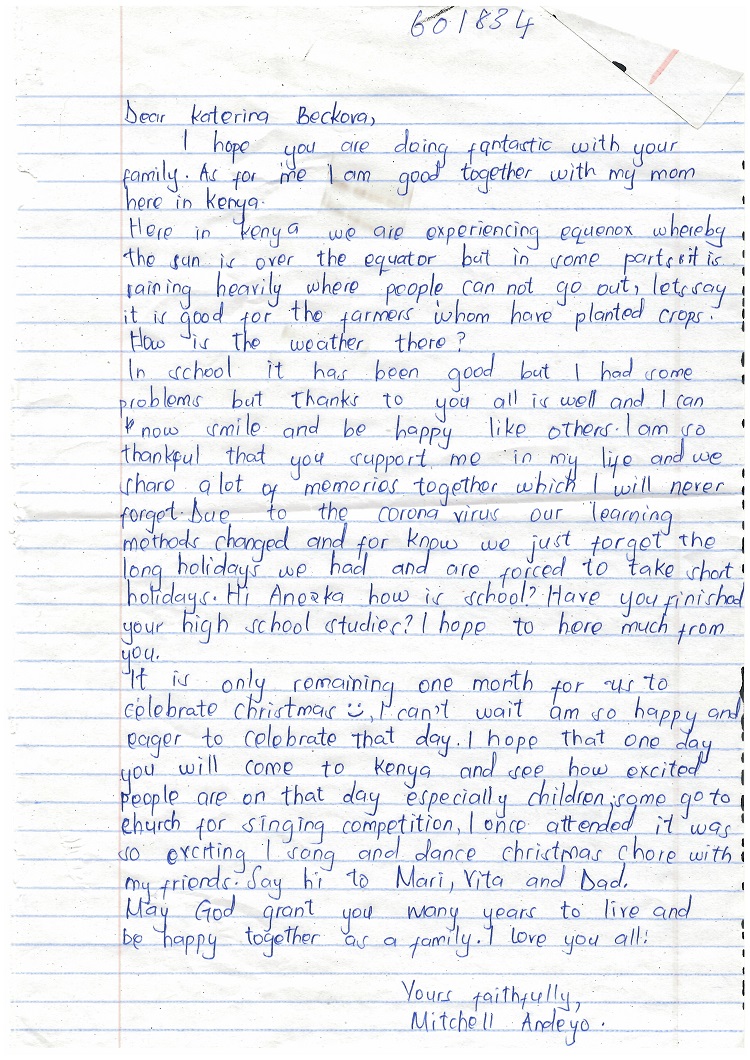 601834
Dear Katerina Beckova,
I hope you are doing fantastic with your
family. As for me I am good together with my mom
here in Kenya.
Here in Kenya we are experiencing equenox whereby
the sun is over the equator but in some parts it is
raining heavily where people can not go out, lets say
it is good for the farmers whom have planted crops.
How is the weather there?
In school it has been good but I had some
problems but thanks to you all is well and I can
now smile and be happy like others. I am so
thankful that you support me in my life and we
share alot of memories together which I will never
forget. Due to the corona virus our learning
methods changed and for know we just forget the
long holidays we had and are forced to take short
holidays. Hi Anezka how is school? Have you finished
your high school studies? I hope to here much from
you.
It is only remaining one month for us to
celebrate christmas ☺, I can't wait am so happy and
eager to celebrate that day. I hope that one day
you will come to Kenya and see how excited
people are on that day especially children; some go to
church for singing competition, I once attended it was
so exciting I song and dance christmas chore with
my friends. Say hi to Mari, Vita and Dad.
May God grant you many years to live and
be happy together as a family. I love you all!
Yours faithfully,
Mitchell Andeyo.